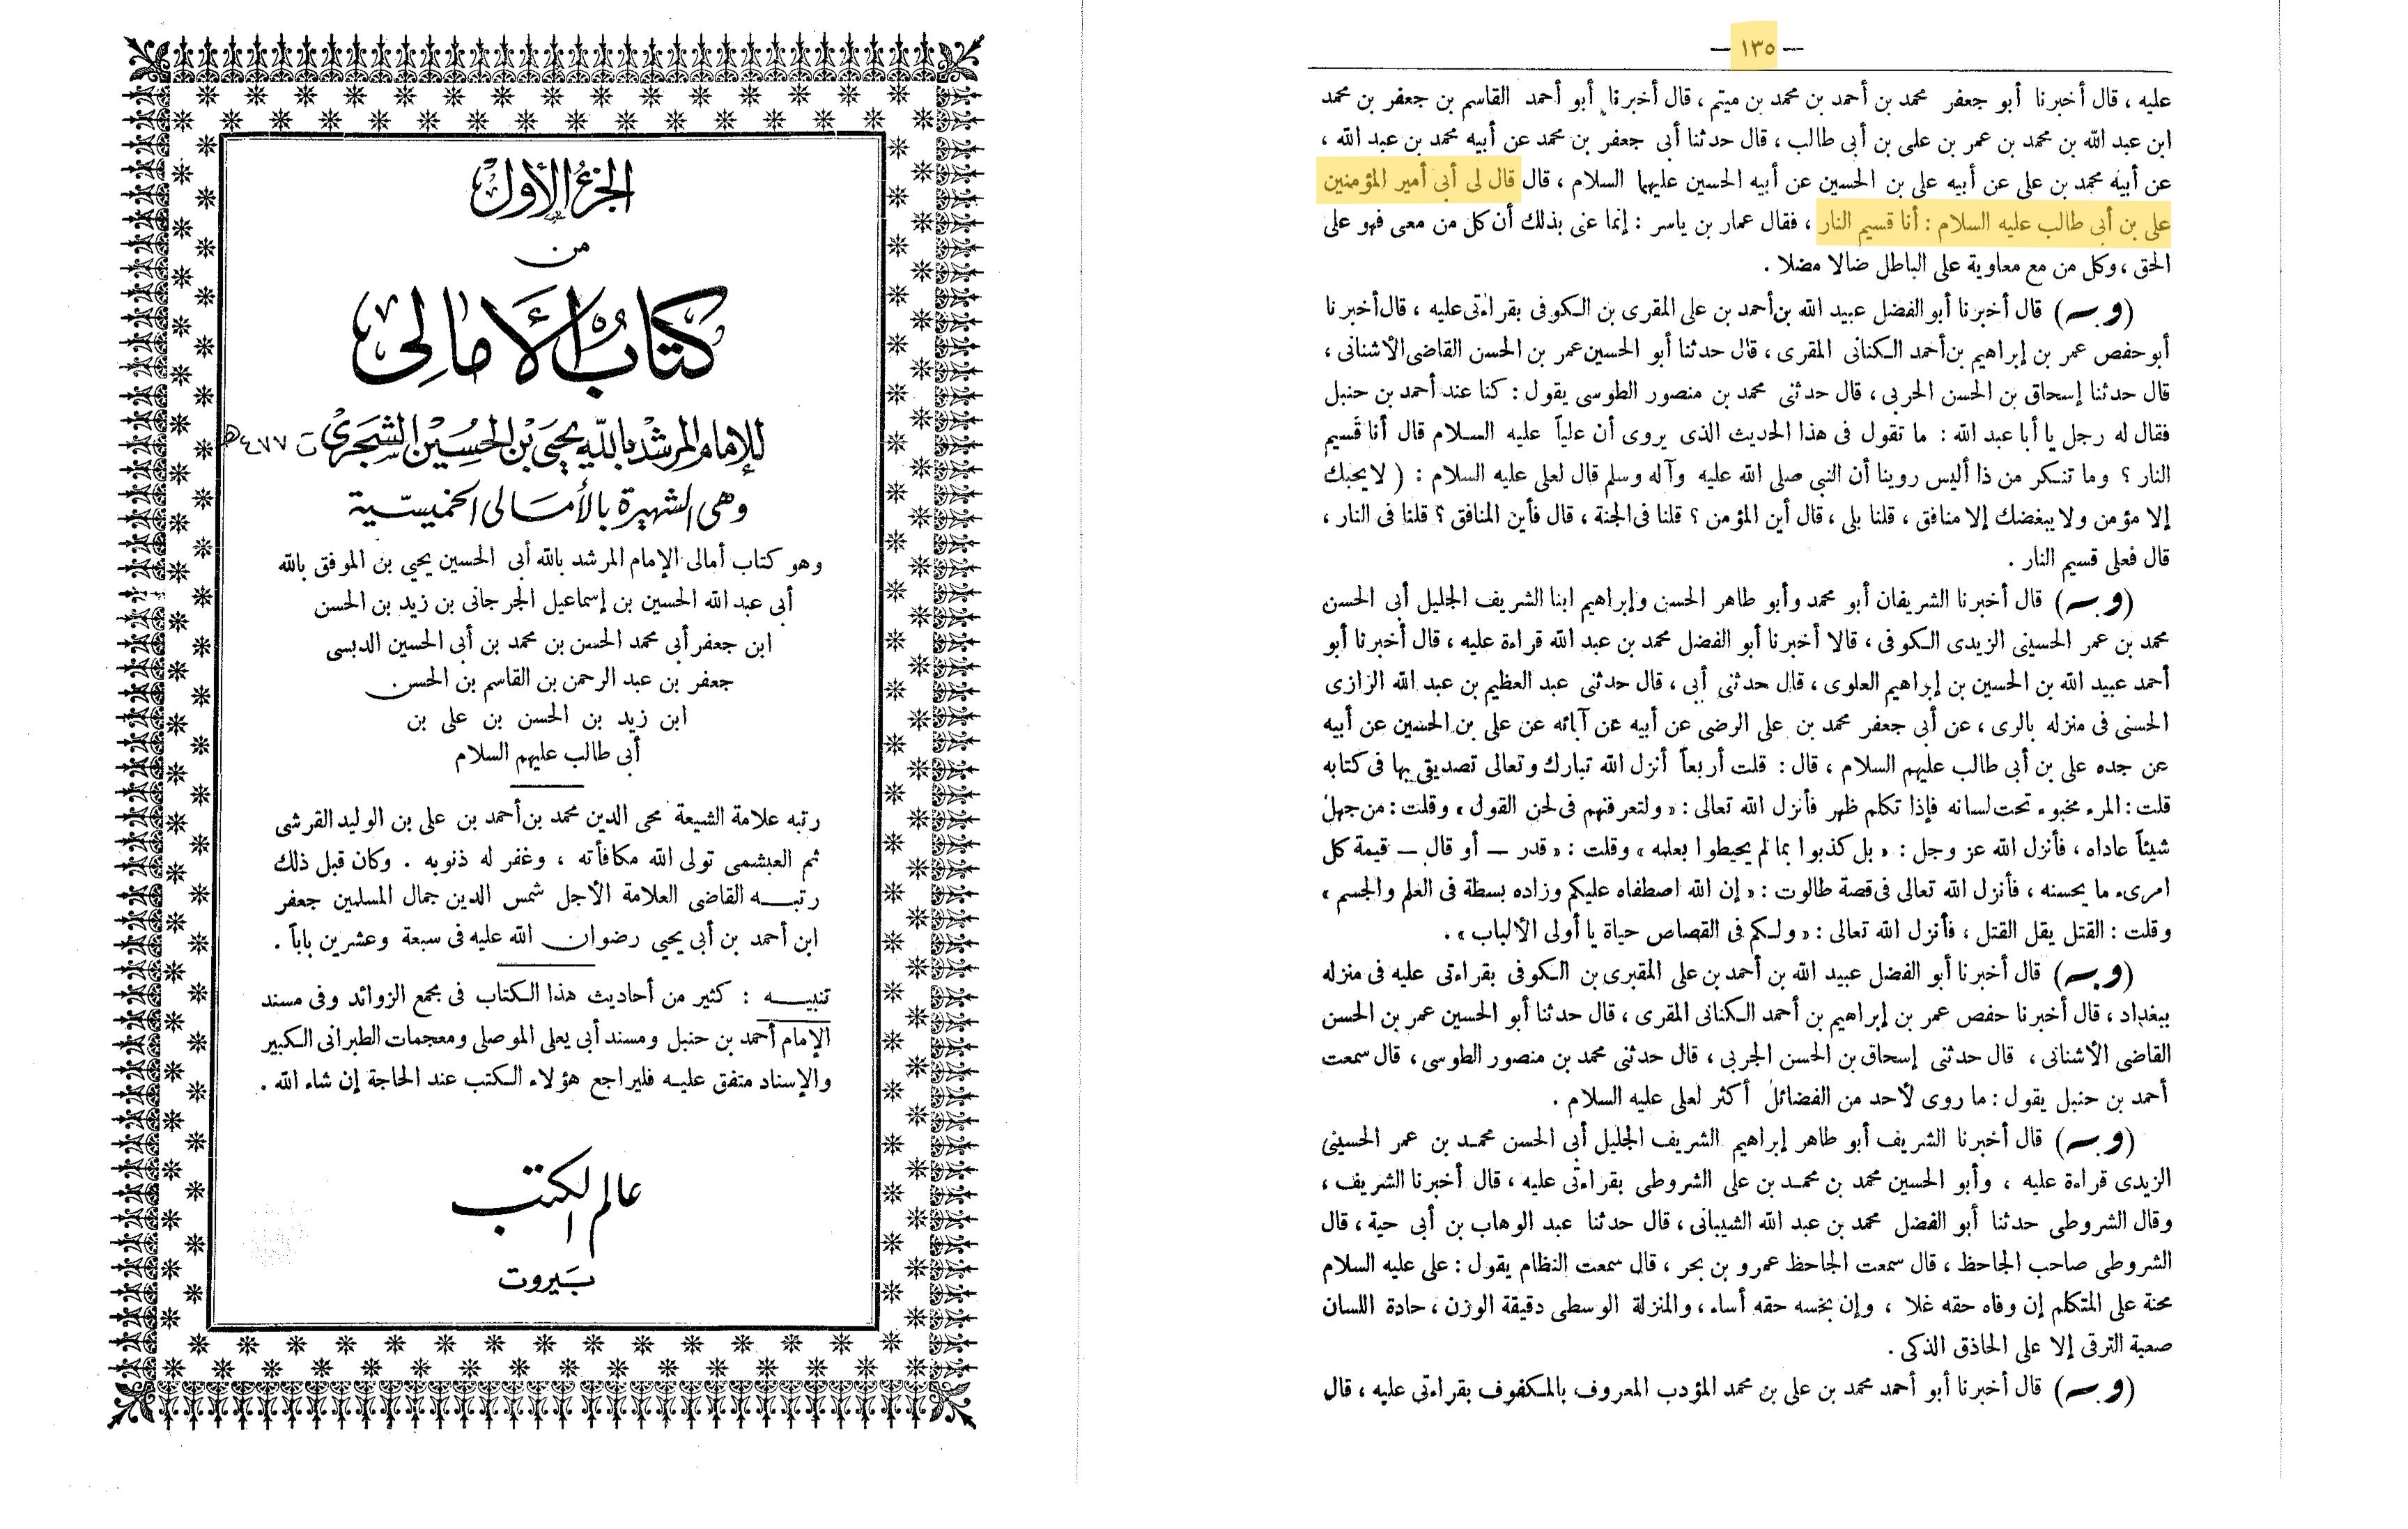 الجزء الأول
من
كتاب الأمالى
للإمام المرشد بالله يحيى بن الحسين الشجرى ت ٤٧٧ هـ
وهى الشهيرة بالأمالى الخميسية
وهو كتاب أمالى الإمام المرشد بالله أبى الحسين يحيي بن الموفق بالله
أبى عبد الله الحسين بن إسماعيل الجرجانى بن زيد بن الحسن
ابن جعفر أبى محمد الحسن بن محمد بن أبى الحسين الدبسى
جعفر بن عبد الرحمن بن القاسم بن الحسن
ابن زيد بن الحسن بن على بن
أبى طالب عليهم السلام
رتبه علامة الشيعة محى الدين محمد بن أحمد بن على بن الوليد القرشى
ثم العبشمى تولى الله مكافأته ، وغفر له ذنوبه . وكان قبل ذلك
رتبه القاضى العلامة الأجل شمس الدين جمال المسلمين جعفر
ابن أحمد بن أبى يحيي رضوان الله عليه فى سبعة وعشرين باباً .
تنبيه : كثير من أحاديث هذا الكتاب فى مجمع الزوائد وفى مسند
الإمام أحمد بن حنبل ومسند أبى يعلى الموصلى ومعجمات الطبرانى الكبير
والإسناد متفق عليه فليراجع هؤلاء الكتب عند الحاجة إن شاء الله .
عالم الكتب
بيروت
— ١٣٥ —
عليه ، قال أخبرنا أبو جعفر محمد بن أحمد بن محمد بن ميتم ، قال أخبرنا أبو أحمد القاسم بن جعفر بن محمد
ابن عبد الله بن محمد بن عمر بن على بن أبى طالب ، قال حدثنا أبى جعفر بن محمد عن أبيه محمد بن عبد الله ،
عن أبيه محمد بن على عن أبيه على بن الحسين عن أبيه الحسين عليهما السلام ، قال قال لى أبى أمير المؤمنين
على بن أبى طالب عليه السلام : أنا قسيم النار ، فقال عمار بن ياسر : إنما عنى بذلك أن كل من معى فهو على
الحق ، وكل من مع معاوية على الباطل ضالا مضلا .
( وبه ) قال أخبرنا أبو الفضل عبيد الله بن أحمد بن على المقرى بن الكوفى بقراءتى عليه ، قال أخبرنا
أبو حفص عمر بن إبراهيم بن أحمد الكنانى المقرى ، قال حدثنا أبو الحسين عمر بن الحسن القاضى الأشنانى ،
قال حدثنا إسحاق بن الحسن الحربى ، قال حدثنى محمد بن منصور الطوسى يقول : كنا عند أحمد بن حنبل
فقال له رجل يا أبا عبد الله : ما تقول فى هذا الحديث الذى يروى أن علياً عليه السلام قال أنا قسيم
النار ؟ وما تنكر من ذا أليس روينا أن النبى صلى الله عليه وآله وسلم قال لعلى عليه السلام : ( لا يحبك
إلا مؤمن ولا يبغضك إلا منافق ، قلنا بلى ، قال أين المؤمن ؟ قلنا فى الجنة ، قال فأين المنافق ؟ قلنا فى النار ،
قال فعلى قسيم النار .
( وبه ) قال أخبرنا الشريفان أبو محمد وأبو طاهر الحسن وإبراهيم ابنا الشريف الجليل أبى الحسن
محمد بن عمر الحسينى الزيدى الكوفى ، قالا أخبرنا أبو الفضل محمد بن عبد الله قراءة عليه ، قال أخبرنا أبو
أحمد عبيد الله بن الحسين بن إبراهيم العلوى ، قال حدثنى أبى ، قال حدثنى عبد العظيم بن عبد الله الزازى
الحسنى فى منزله بالرى ، عن أبى جعفر محمد بن على الرضى عن أبيه عن آبائه عن على بن الحسين عن أبيه
عن جده على بن أبى طالب عليهم السلام ، قال : قلت أربعاً أنزل الله تبارك وتعالى تصديقى بها فى كتابه
قلت : المرء مخبوء تحت لسانه فإذا تكلم ظهر فأنزل الله تعالى : « ولتعرفنهم فى لحن القول » وقلت : من جهل
شيئاً عاداه ، فأنزل الله عز وجل : « بل كذبوا بما لم يحيطوا بعلمه » وقلت : « قدر — أو قال — قيمة كل
امرىء ما يحسنه ، فأنزل الله تعالى فى قصة طالوت : « إن الله اصطفاه عليكم وزاده بسطة فى العلم والجسم »
وقلت : القتل يقل القتل ، فأنزل الله تعالى : « ولكم فى القصاص حياة يا أولى الألباب » .
( وبه ) قال أخبرنا أبو الفضل عبيد الله بن أحمد بن على المقبرى بن الكوفى بقراءتى عليه فى منزله
ببغداد ، قال أخبرنا حفص عمر بن إبراهيم بن أحمد الكنانى المقرى ، قال حدثنا أبو الحسين عمر بن الحسن
القاضى الأشنانى ، قال حدثنى إسحاق بن الحسن الجربى ، قال حدثنى محمد بن منصور الطوسى ، قال سمعت
أحمد بن حنبل يقول : ما روى لأحد من الفضائل أكثر لعلى عليه السلام .
( وبه ) قال أخبرنا الشريف أبو طاهر إبراهيم الشريف الجليل أبى الحسن محمد بن عمر الحسينى
الزيدى قراءة عليه ، وأبو الحسين محمد بن محمد بن على الشروطى بقراءتى عليه ، قال أخبرنا الشريف ،
وقال الشروطى حدثنا أبو الفضل محمد بن عبد الله الشيبانى ، قال حدثنا عبد الوهاب بن أبى حية ، قال
الشروطى صاحب الجاحظ ، قال سمعت الجاحظ عمرو بن بحر ، قال سمعت النظام يقول : على عليه السلام
محنة على المتكلم إن وفاه حقه غلا ، وإن بخسه حقه أساء ، والمنزلة الوسطى دقيقة الوزن ، حادة اللسان
صعبة الترقى إلا على الحاذق الذكى .
( وبه ) قال أخبرنا أبو أحمد محمد بن على بن محمد المؤدب المعروف بالمكفوف بقراءتى عليه ، قال